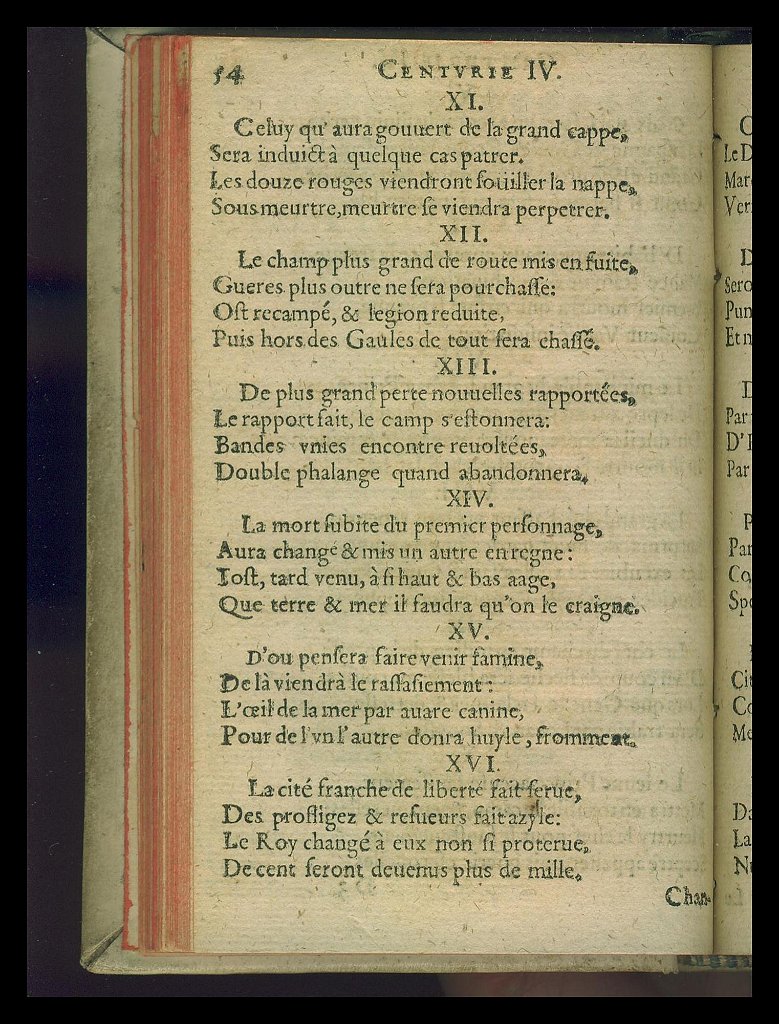 54 CENTVRIE IV.
XI.
Celuy qu' aura gouuert de la grand cappe,
Sera induict à quelque cas patrer.
Les douze rouges viendront soüiller la nappe,
Sous meurtre, meurtre se viendra perpetrer.
XII.
Le champ plus grand de route mis en fuite,
Gueres plus outre ne sera pourchassé:
Ost recampé, & legion reduite,
Puis hors des Gaules de tout sera chassé.
XIII.
De plus grand perte nouuelles rapportées,
Le rapport fait, le camp s'estonnera:
Bandes vnies encontre reuoltées,
Double phalange quand abandonnera.
XIV.
La mort subite du premier personnage,
Aura changé & mis un autre en regne:
Tost, tard venu, à si haut & bas aage,
Que terre & mer il faudra qu'on le craigne.
XV.
D'ou pensera faire venir famine,
De là viendrà le rassasiement:
L'œil de la mer par auare canine,
Pour de l'vn l'autre donra huyle, fromment.
XVI.
La cité franche de liberté fait serue,
Des profligez & resueurs fait azyle:
Le Roy changé à eux non si proterue,
De cent seront deuenus plus de mille.
Chan-